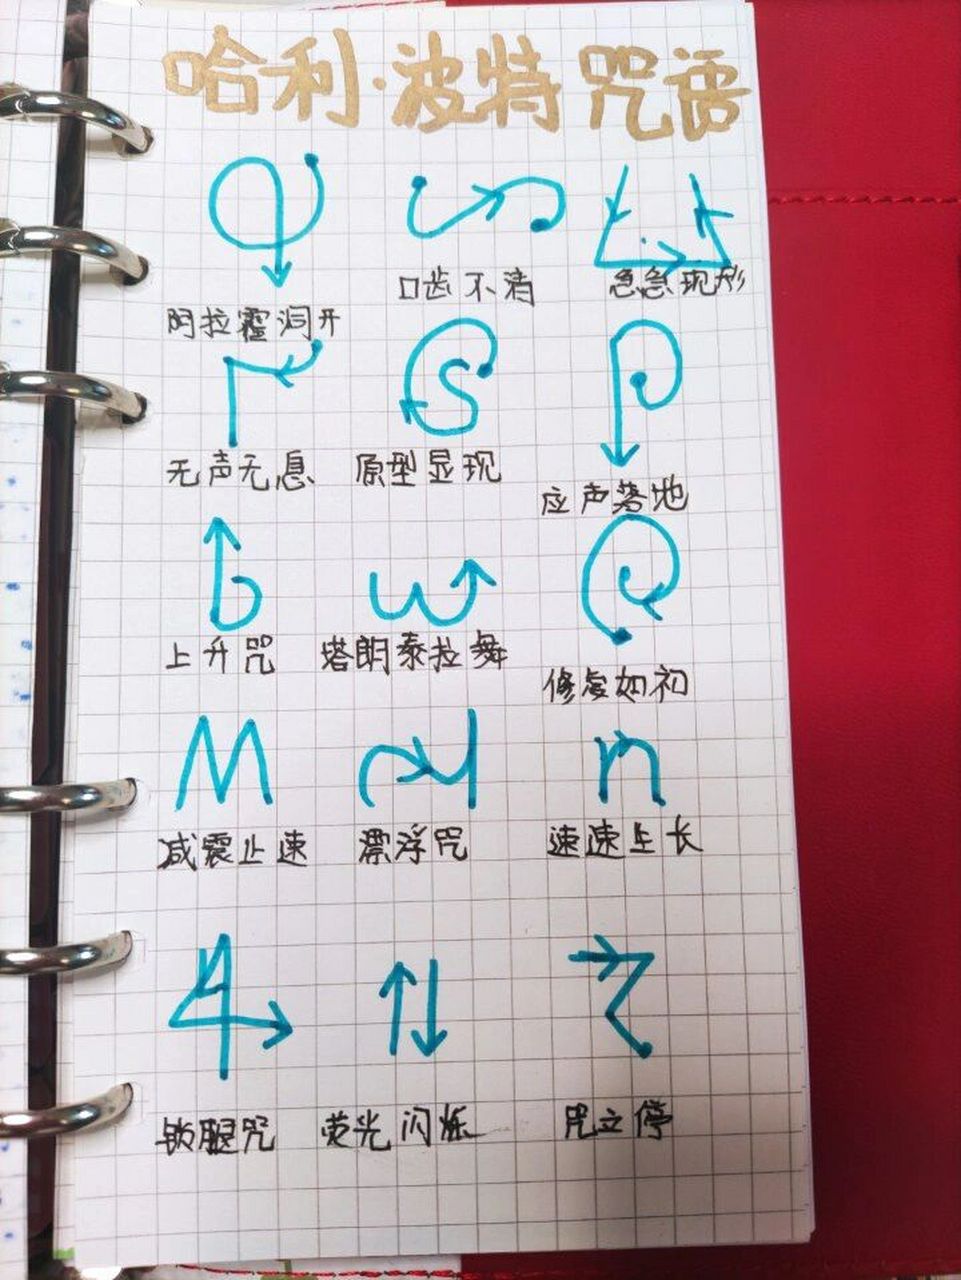 哈利·波特咒语
阿拉霍洞开 口齿不清 急急现形
无声无息 原型显现 应声落地
上升咒 塔朗泰拉舞 修复如初
减震止速 漂浮咒 速速生长
锁腿咒 荧光闪烁 咒立停